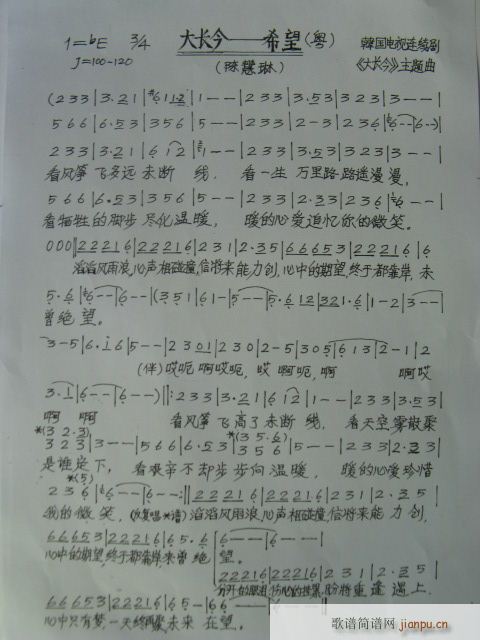 1=bE 3/4 大长今——希望(粤) 韓国电视连续剧
J=100-120 (陈慧琳) 《大长今》主题曲
(2 3 3|3·2 1|6 1 1 2|1 - -|2 3 3|3·5 3|3 2 3|3 - -|
5 6 6|6·5 3|3 5 6|5 - -|2 3 3|2-3|2 3 6|6 - -|6 - -)|
2 3 3|3·2 1|6 1 2|1 - -|2 3 3|3·5 3|3 2 3|3 - -|
看风筝 飞多远 未断 线, 看一生 万里路 路遥漫漫,
5 6 6|6·5 3|3 5 6|5 - -|2 3 3|2·3 3|2 3 6|6 - -|
看牺牲的脚步 尽化温暖, 暖的心爱追忆你的微笑。
0 0 0||2 2 2 1 6|2 2 2 1 6|2 3 1|2·3 5|6 6 6 5 3|2 2 2 1 6|6
滔滔风雨浪,心声相碰撞,信将来能力创,心中的期望,终于都靠岸,未
5·6|6 - -|6 - -|(3 5 1|6 1 -|5 - -|5·6 1 2|3 2 1·6|1 - 2|3 - -|
曾绝 望。
3 - 5|6·1 6|5 - -|2 3 0 1|2 3 0|2 - 5|3 0 5|6 1 3|2 - 1|2
(伴)哎呃 啊哎呃, 哎 啊呃,啊 啊哎
3·1|6 - -|6 - -)||:2 3 3|3·2 1|6 1 2|1 - -|2 3 3|3·5 3|
啊 啊 看风筝 飞高了 未断 线, 看天空,雾散聚
*(3 2·3) *(3 5·6)
3 2 3|3 - -|5 6 6|6·5 3|3 5 6|5 - -|2 3 3|2·3 3|
是谁定下, 看艰辛不却步 步向温暖, 暖的心爱珍惜
*(5)
2 3 6|6 - -|6 - -:||2 2 2 1 6|2 2 2 1 6|2 3 1|2·3 5|
我的微笑, (反复唱*谱)滔滔风雨浪,心声相碰撞,信将来能力创,
6 6 6 5 3|2 2 2 1 6|6 5·6|6 - -|6 - -|
心中的期望,终于都靠岸未曾绝 望。
2 2 2 1 6|2 2 2 1 6|2 3 1|2·3 5|
盼将重逢遇上,
6 6 6 5 3|2 2 2 1 6|6 5 -|6 - -|6 - -||
心中只有梦一天终再聚未来 在望。
歌谱简谱网
www.jianpu.cn